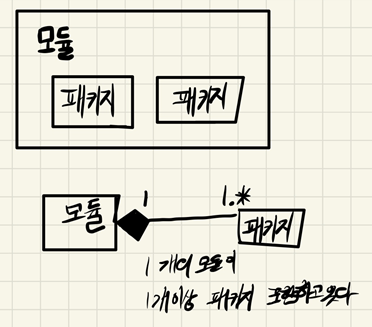 모듈
패키지 패키지
모듈 1 1.* 패키지
1개의 모듈이
1개이상 패키지 포함하고 있다